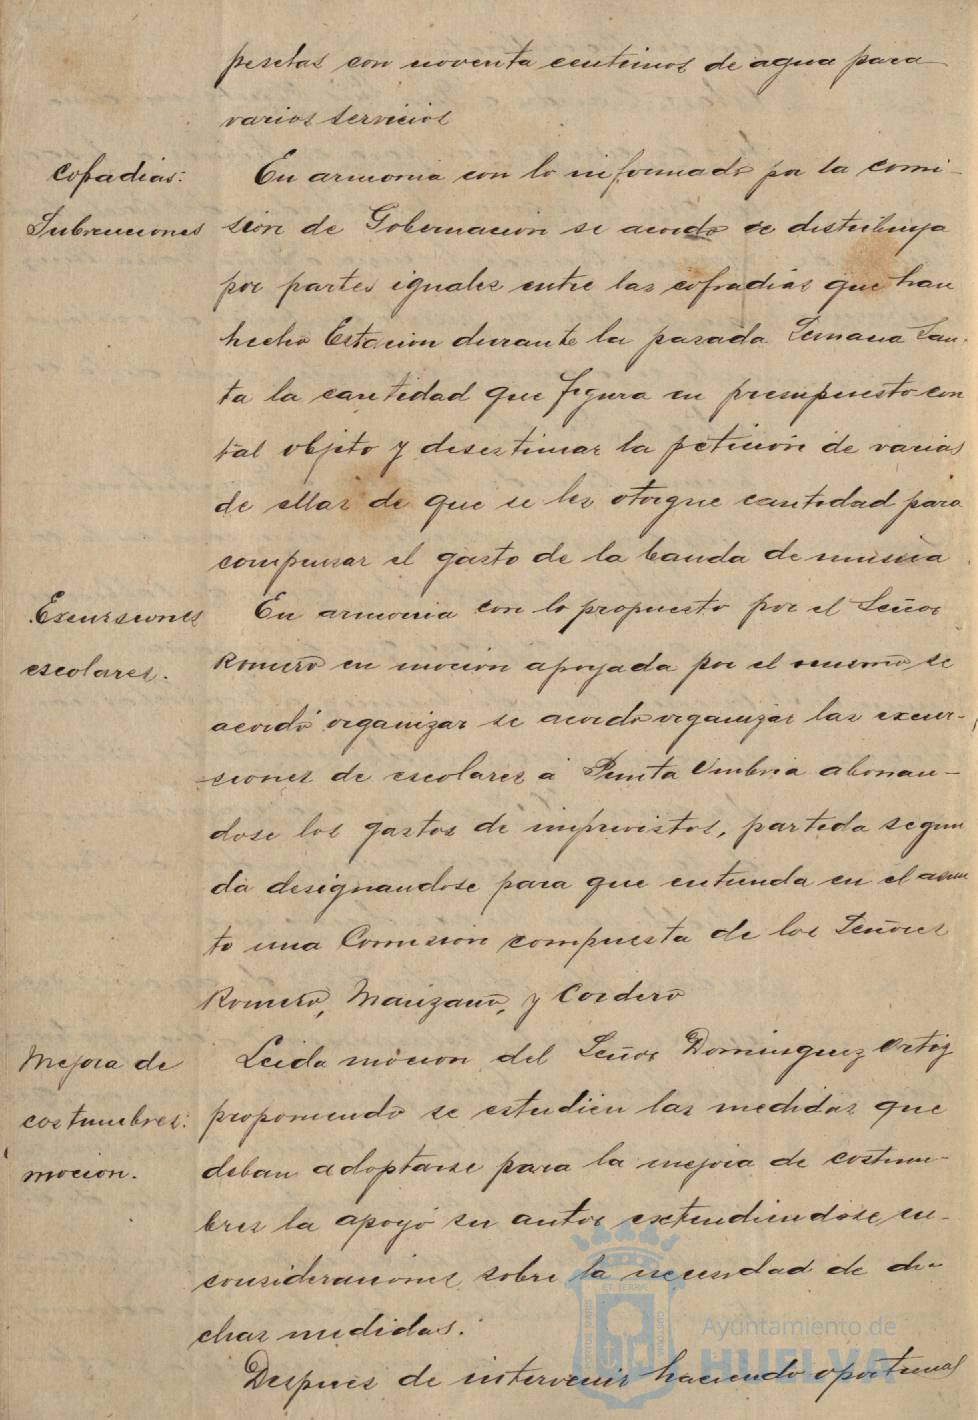 pesetas con noventa centimos de agua para
varios servicios
Cofradias:
Subvenciones
En armonia con lo informado por la comi-
sión de Gobernación se acordo se distribuya
por partes iguales entre las cofradias que han
hecho Estacion durante la pasada Semana San-
ta la cantidad que figura en presupuesto con
tal objeto y desestimar la petición de varias
de ellas de que se les otorgue cantidad para
compensar el gasto de la banda de musica
Excursiones
escolares.
En armonia con lo propuesto por el Señor
Romero en moción apoyada por el mismo se
acordó organizar se acordo organizar las excur-
siones de escolares a Punta Umbria abonan-
dose los gastos de imprevistos, partida segun
da designandose para que entienda en el asun
to una Comisión compuesta de los Señores
Romero, Manzano, y Cordero
Mejora de
costumbres:
moción.
Leida mocion del Señor Dominguez Ortiz
proponiendo se estudien las medidas que
deban adoptarse para la mejora de costum-
bres la apoyó su autor extendiendose en
consideraciones sobre la necesidad de di-
chas medidas.
Despues de intervenir haciendo oportunas
Ayuntamiento de
HUELVA